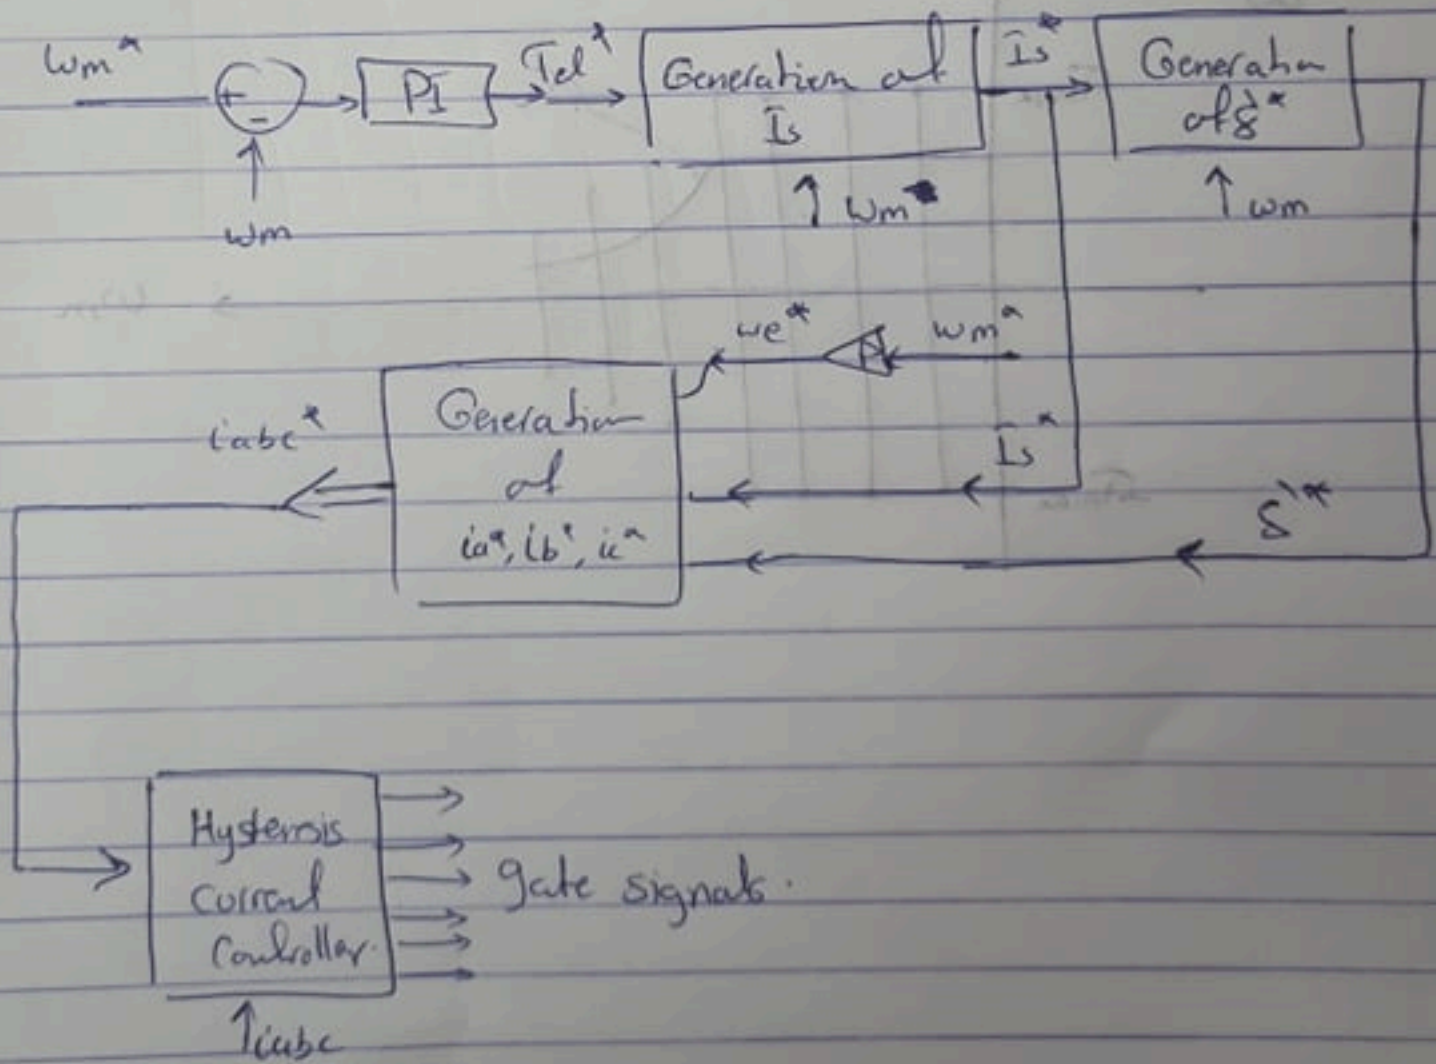 ωm*
+
-
ωm
PI
Tel*
Generation of
Is
ωm
Is*
Generation
of δ'*
ωm
ωe*
P
ωm*
Is*
δ'*
Generation
of
ia*, ib*, ic*
iabc*
Hysterisis
Current
Controller.
iabc
gate signals.